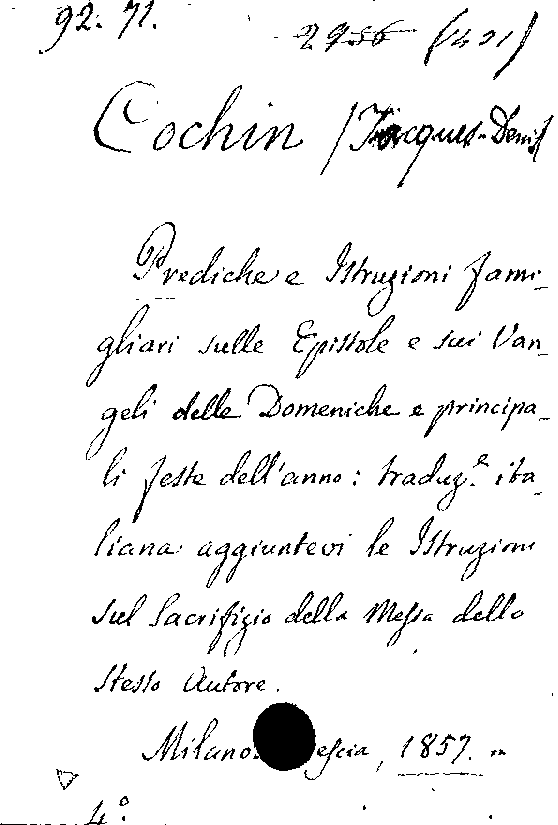 92. 71.
2956 (421)
Cochin (Jacques-Denis)
Prediche e Istruzioni fami-
gliari sulle Epistole e sui Van-
geli delle Domeniche e principa-
li feste dell'anno: traduz.e ita-
liana aggiuntevi le Istruzioni
sul Sacrifizio della Messa dello
stesso Autore.
Milano. escia, 1857.
4°.